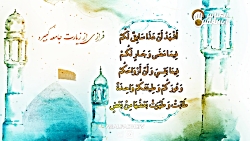 فرازی از زیارت جامعه کبیره
أَشْهَدُ أَنَّ هَذَا سَابِقٌ لَكُمْ
فِيمَا مَضَى وَ جَارٍ لَكُمْ
فِيمَا بَقِيَ وَ أَنَّ أَرْوَاحَكُمْ
وَ نُورَكُمْ وَ طِينَتَكُمْ وَاحِدَةٌ
طَابَتْ وَ طَهُرَتْ بَعْضُهَا مِنْ بَعْضٍ